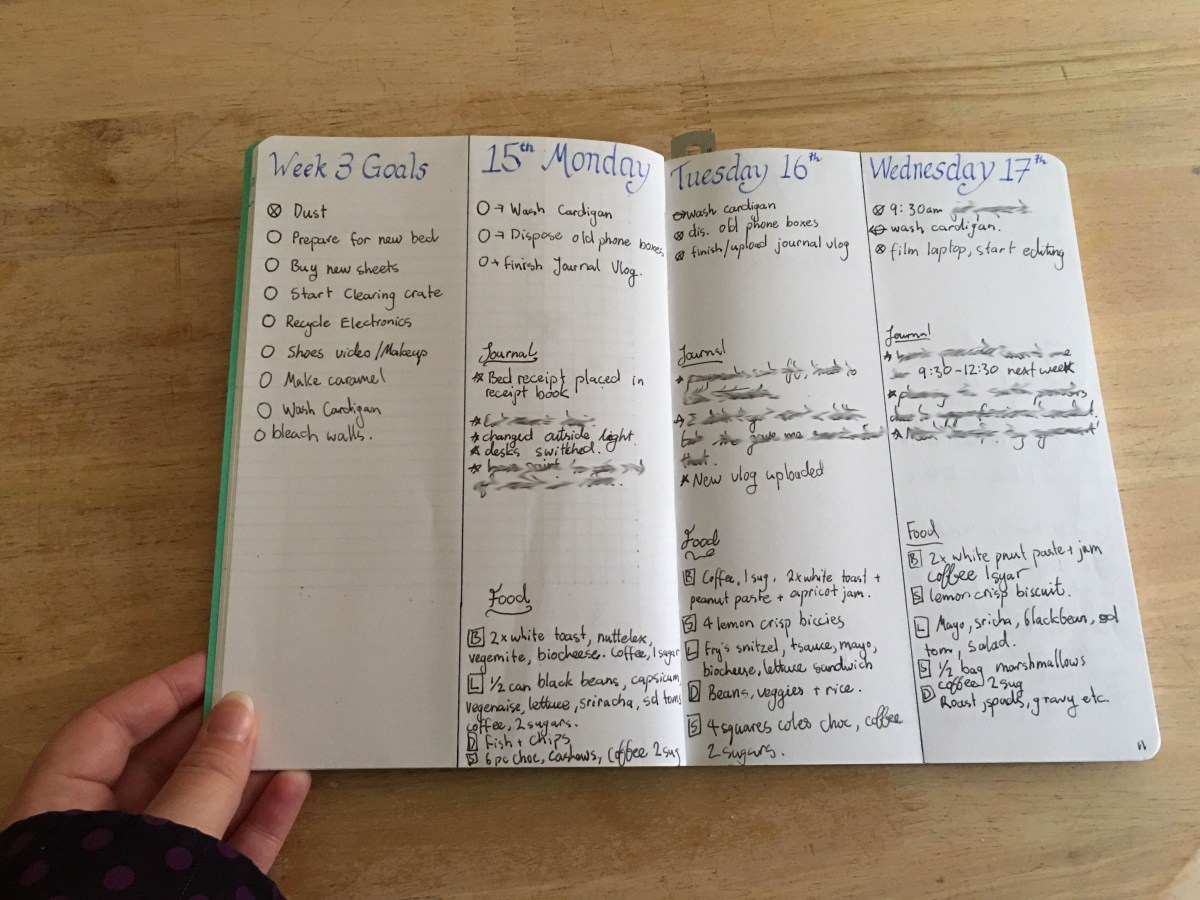 Week 3 Goals
Dust
Prepare for new bed
Buy new sheets
Start Clearing crate
Recycle Electronics
Shoes video/Makeup
Make caramel
Wash Cardigan
bleach walls.
15th Monday
→ Wash Cardigan
→ Dispose old phone boxes
→ Finish Journal Vlog.
Journal
* Bed receipt placed in
receipt book
* changed outside light.
* desks switched.
Food
B 2x white toast, nuttelex,
vegemite, biocheese. Coffee, 1 sugar
L 1/2 can black beans, capsicum,
vegenaise, lettuce, sriracha, sd toms
coffee, 2 sugars.
D Fish + chips
S 6 pc choc, cashews, Coffee 2 sug
Tuesday 16th
wash cardigan
dis. old phone boxes
finish/upload journal vlog
Journal
gave me
that.
* New vlog uploaded
Food
B Coffee, 1 sug, 2x white toast +
peanut paste + apricot jam.
S 4 lemon crisp biccies
L Fry's snitzel, tsauce, mayo,
biocheese, lettuce sandwich
D Beans, veggies + rice.
S 4 squares coles choc, coffee
2 sugars.
Wednesday 17th
9:30am
wash cardigan.
film laptop, start editing
Journal
9:30-12:30 next week
Food
B 2x white pnut paste + jam
coffee 1 sugar
S lemon crisp biscuit.
L Mayo, sricha, blackbean, sd
tom, salad.
S 1/2 bag marshmallows
coffee 2 sug
D Roast, spuds, gravy etc.
11